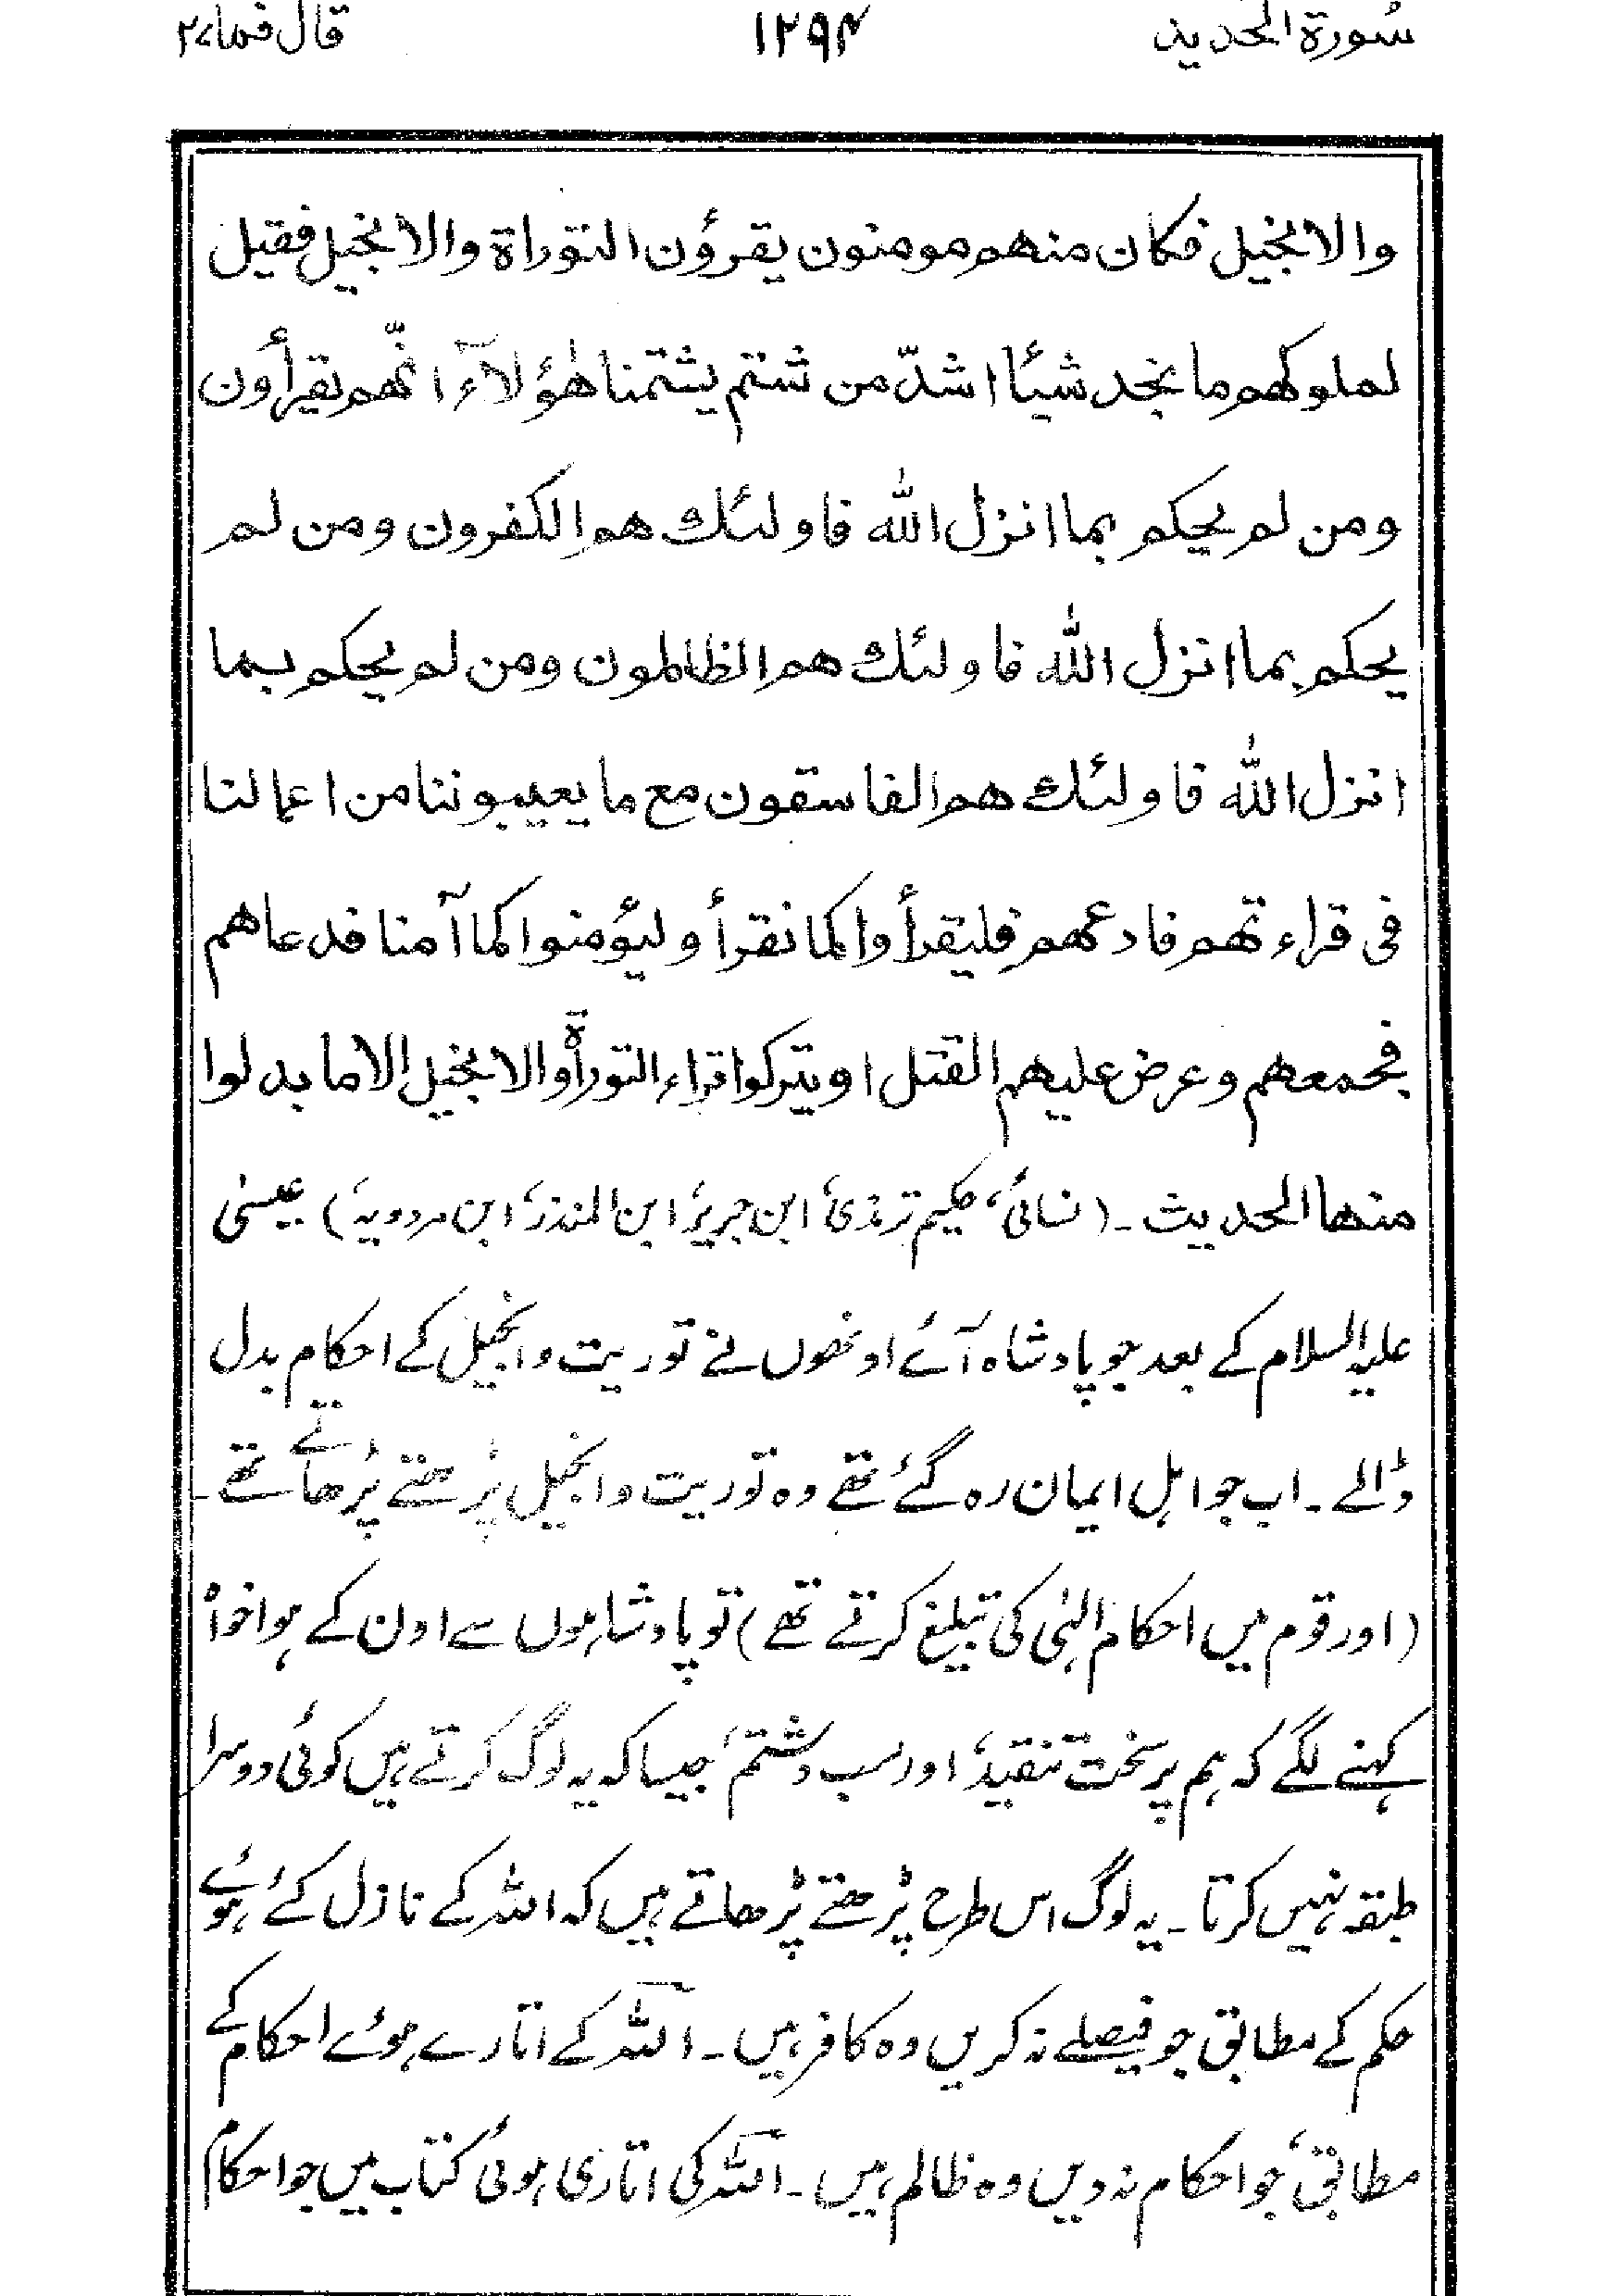 سُورة الحدید ۱۲۹۴ قال فما۲۷
والانجیل فکان منھم مومنون یقرؤن التوراۃ والانجیل فقیل
لملوکھم ما نجد شیئا اشدّ من شتم یشتمنا ھٰؤلآء انّھم یقرأون
ومن لم یحکم بما انزل اللہ فاولئک ھم الکفرون ومن لم
یحکم بما انزل اللہ فاولئک ھم الظالمون ومن لم یحکم بما
انزل اللہ فاولئک ھم الفاسقون مع ما یعیبوننا من اعمالنا
فی قراءتھم فادعھم فلیقرأوا کما نقرأ ولیؤمنوا کما آمنا فدعاھم
فجمعھم وعرض علیھم القتل او یترکوا قراء التوراۃ والانجیل الاما بدلوا
منھا الحدیث۔ (نسائی، حکیم ترمذی، ابن جریر، ابن المنذر، ابن مردویہ) عیسٰی
علیہ السلام کے بعد جو پادشاہ آئے اونھوں نے توریت وانجیل کے احکام بدل
ڈالے۔ اب جو اہل ایمان رہ گئے تھے وہ توریت وانجیل پڑھتے پڑھاتے تھے۔
(اور قوم میں احکام الہٰی کی تبلیغ کرتے تھے) تو پادشاہوں سے اون کے ہوا خواہ
کہنے لگے کہ ہم پر سخت تنقید، اور سب وشتم، جیسا کہ یہ لوگ کرتے ہیں کوئی دوسرا
طبقہ نہیں کرتا۔ یہ لوگ اس طرح پڑھتے پڑھاتے ہیں کہ اللہ کے نازل کئے ہوئے
حکم کے مطابق جو فیصلے نہ کریں وہ کافر ہیں۔ اللہ کے اتارے ہوئے احکام کے
مطابق، جو احکام نہ دیں وہ ظالم ہیں۔ اللہ کی اتاری ہوئی کتاب میں جو احکام